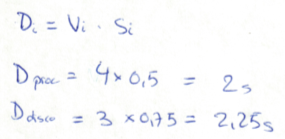 Di = Vi · Si
Dproc = 4 x 0,5 = 2s
Ddisco = 3 x 0,75 = 2,25s